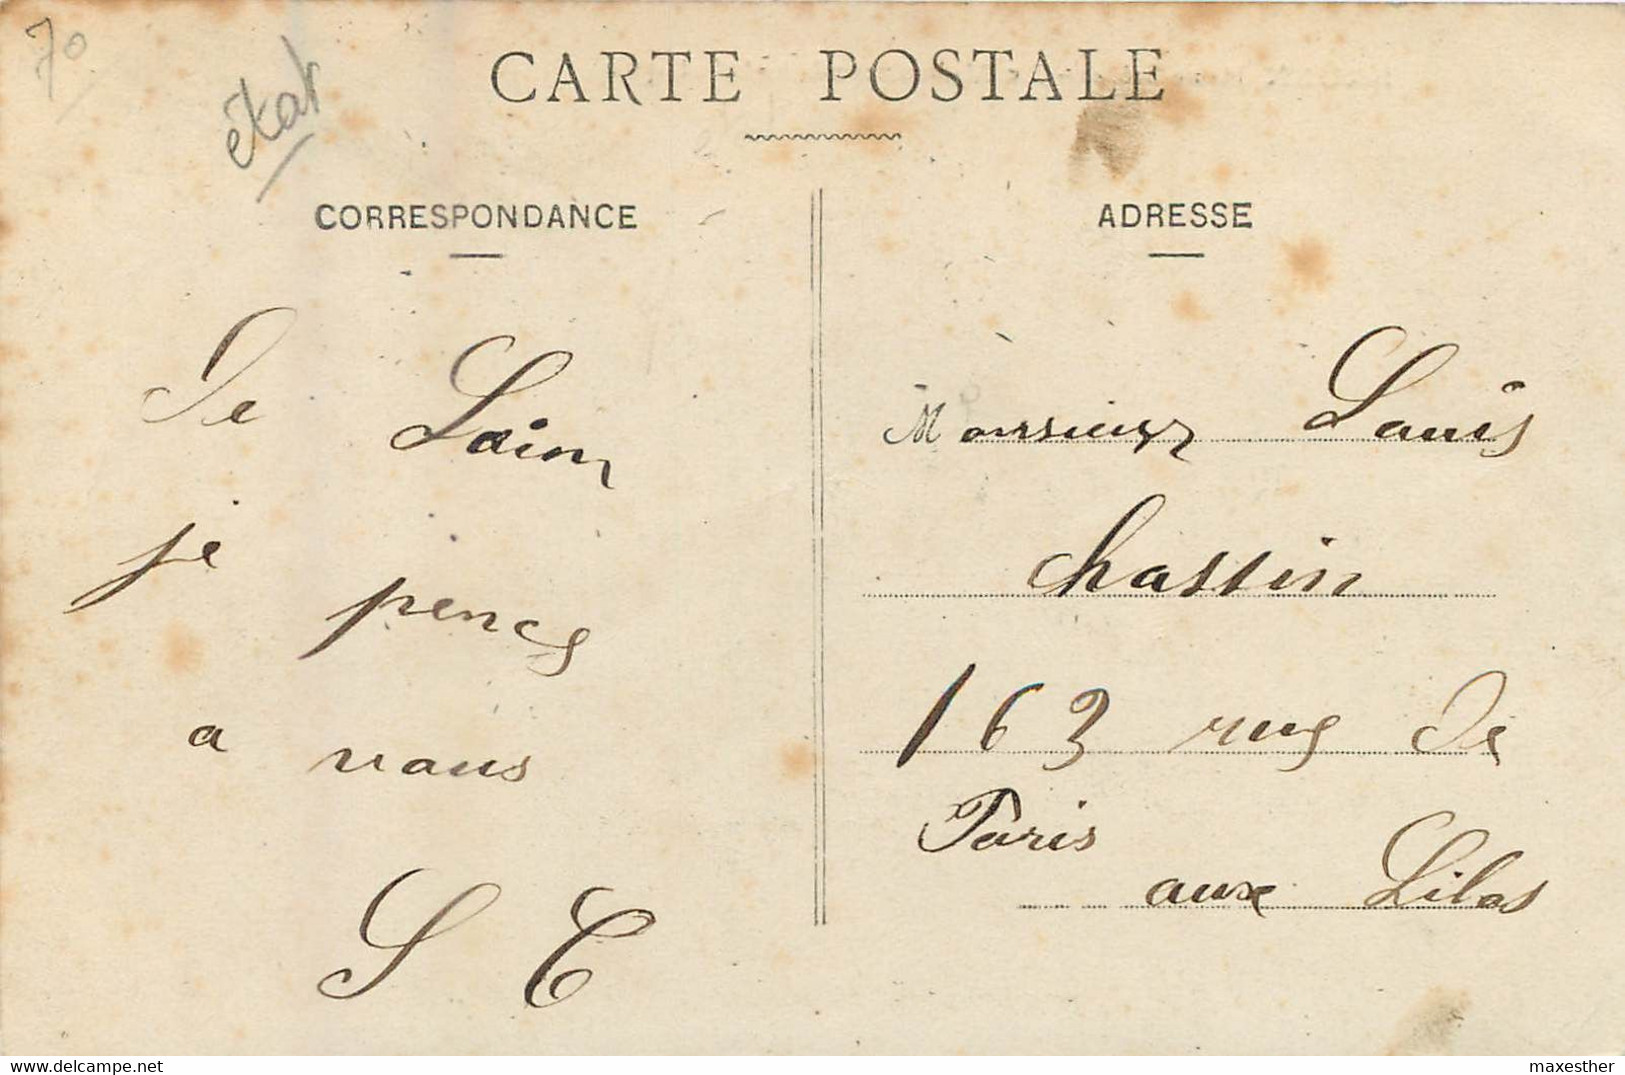 70
état
CARTE POSTALE
CORRESPONDANCE
De Loin
je pence
a vous
S C
ADRESSE
Monsieur Louis
Chassin
163 rue de
Paris
aux Lilas
maxesther